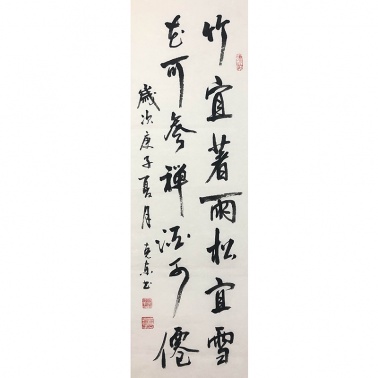 竹宜著雨松宜雪
花可參禪酒可僊
歲次庚子夏月克東書